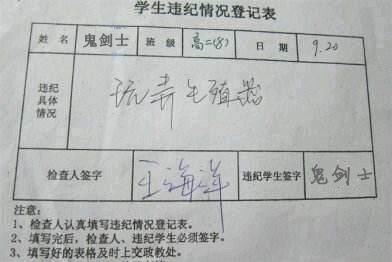 学生违纪情况登记表
姓名 鬼剑士 班级 高二(8) 日期 9.20
违纪具体情况 玩弄生殖器
检查人签字 王海洋 违纪学生签字 鬼剑士
注意：
1、检查人认真填写违纪情况登记表。
2、填写完后，检查人、违纪学生必须签字。
3、填写好的表格及时上交政教处。